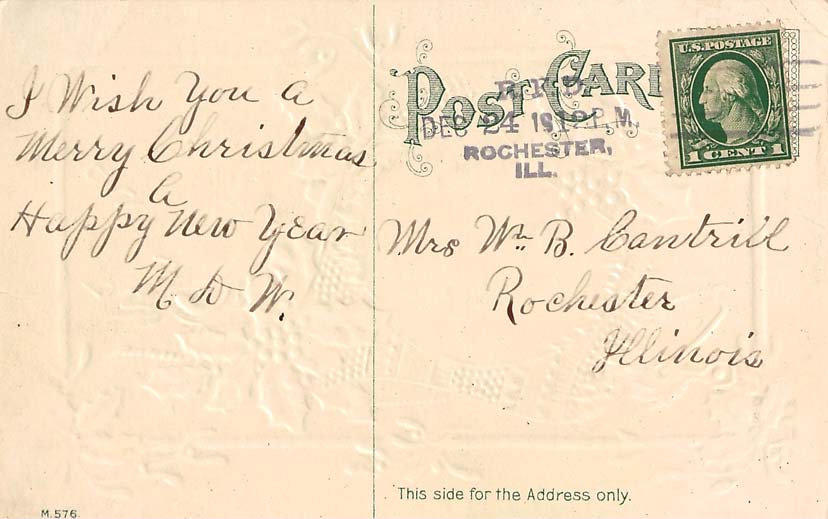 I Wish You a
Merry Christmas
a
Happy New Year
M D W.
POST CARD
R.F.D.
DEC 24 1912 P.M.
ROCHESTER,
ILL.
U.S. POSTAGE
1 CENT 1
Mrs Wm. B. Cantrill
Rochester
Illinois
This side for the Address only.
M. 576.